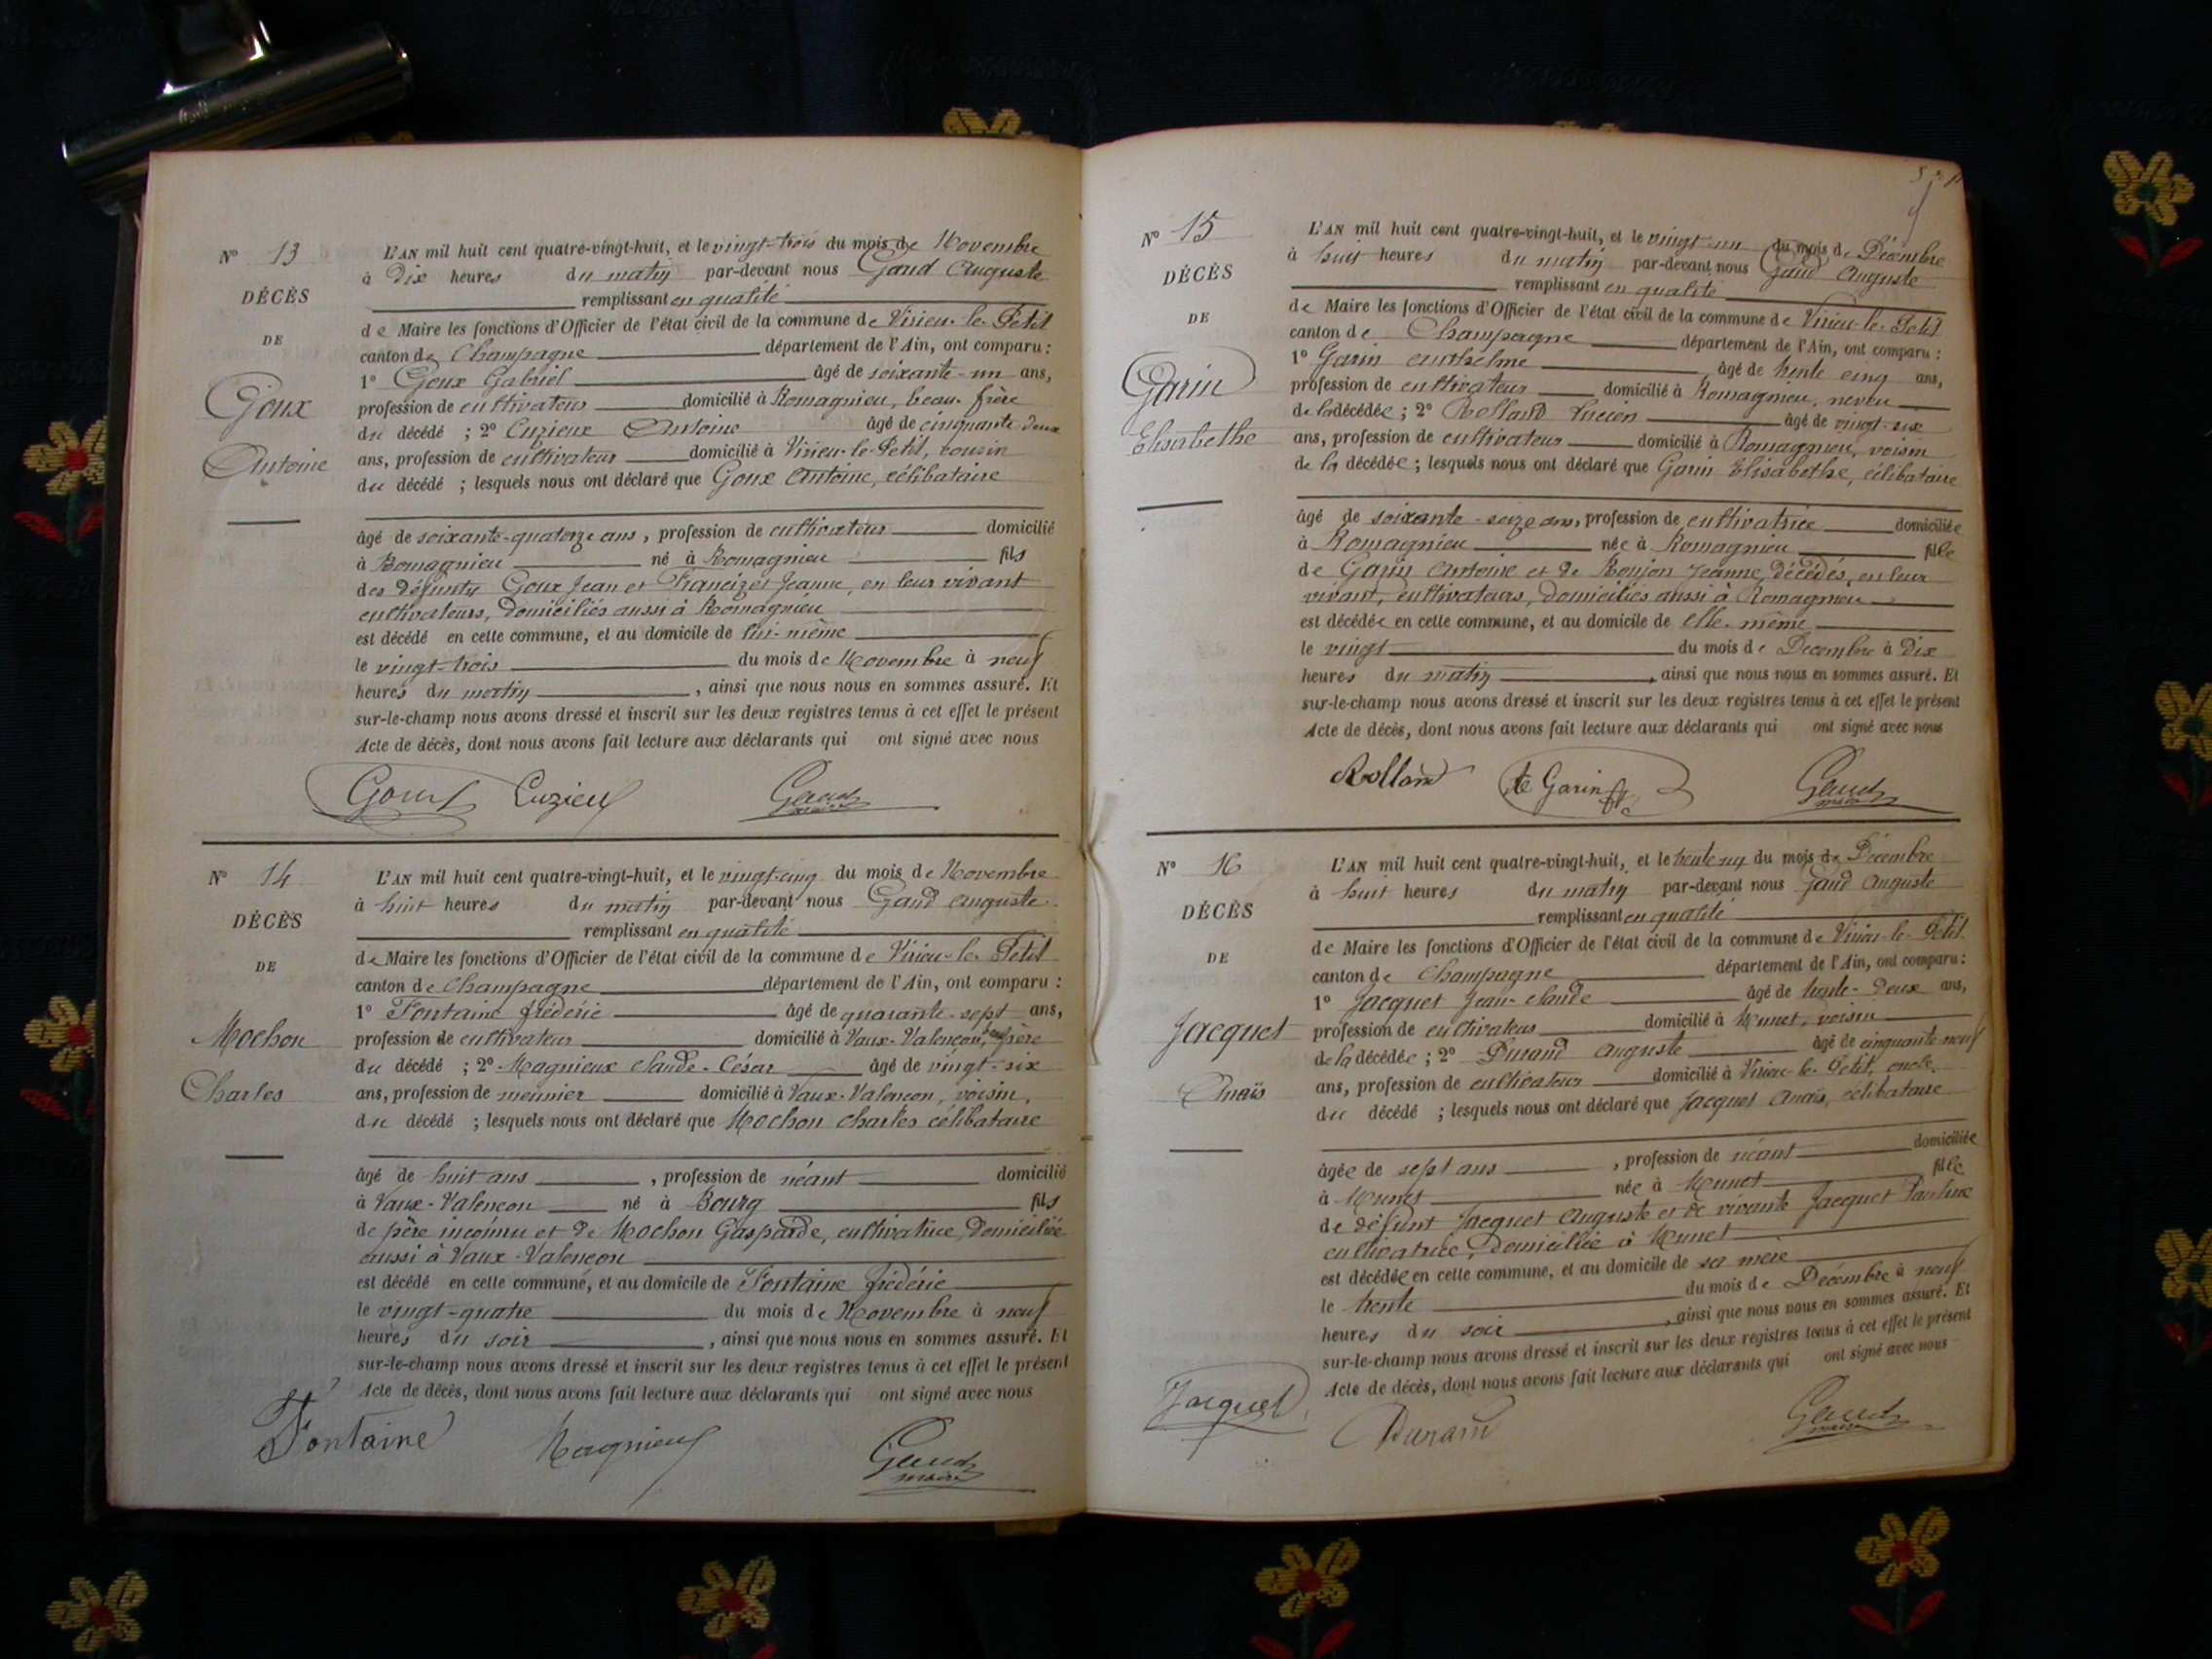 N° 13
DÉCÈS
DE
Goux
Antoine
L'AN mil huit cent quatre-vingt-huit, et le vingt-trois du mois de Novembre
à dix heures du matin par-devant nous Gaud Auguste
remplissant en qualité
de Maire les fonctions d'Officier de l'état civil de la commune de Virieu-le-Petit
canton de Champagne département de l'Ain, ont comparu :
1° Goux Gabriel âgé de soixante-un ans,
profession de cultivateur domicilié à Romagnieu, beau-frère
du décédé ; 2° Cuzieux Antoine âgé de cinquante deux
ans, profession de cultivateur domicilié à Virieu-le-Petit, cousin
du décédé ; lesquels nous ont déclaré que Goux Antoine, célibataire
âgé de soixante-quatorze ans, profession de cultivateur domicilié
à Romagnieu né à Romagnieu fils
des défunts Goux Jean et Jeanne, en leur vivant
cultivateurs, domiciliés aussi à Romagnieu
est décédé en cette commune, et au domicile de lui-même
le vingt-trois du mois de Novembre à neuf
heures du matin, ainsi que nous nous en sommes assuré. Et
sur-le-champ nous avons dressé et inscrit sur les deux registres tenus à cet effet le présent
Acte de décès, dont nous avons fait lecture aux déclarants qui ont signé avec nous
Goux Cuzieux Gaud
maire
N° 14
DÉCÈS
DE
Mochon
Charles
L'AN mil huit cent quatre-vingt-huit, et le vingt-cinq du mois de Novembre
à huit heures du matin par-devant nous Gaud Auguste
remplissant en qualité
de Maire les fonctions d'Officier de l'état civil de la commune de Virieu-le-Petit
canton de Champagne département de l'Ain, ont comparu :
1° Fontaine frédéric âgé de quarante-sept ans,
profession de cultivateur domicilié à Vaux-Valencon,
du décédé ; 2° Magnieux Claude-César âgé de vingt-six
ans, profession de meunier domicilié à Vaux-Valencon, voisin,
du décédé ; lesquels nous ont déclaré que Mochon Charles célibataire
âgé de huit ans, profession de néant domicilié
à Vaux-Valencon né à Bourg fils
de père inconnu et de Mochon Gasparde, cultivatrice, domiciliée
aussi à Vaux-Valencon
est décédé en cette commune, et au domicile de Fontaine frédéric
le vingt-quatre du mois de Novembre à neuf
heures du soir, ainsi que nous nous en sommes assuré. Et
sur-le-champ nous avons dressé et inscrit sur les deux registres tenus à cet effet le présent
Acte de décès, dont nous avons fait lecture aux déclarants qui ont signé avec nous
Fontaine Magnieux Gaud
maire
N° 15
DÉCÈS
DE
Garin
Elisabethe
L'AN mil huit cent quatre-vingt-huit, et le vingt-un du mois de Décembre
à huit heures du matin par-devant nous Gaud Auguste
remplissant en qualité
de Maire les fonctions d'Officier de l'état civil de la commune de Virieu-le-Petit
canton de Champagne département de l'Ain, ont comparu :
1° Garin Anthelme âgé de trente cinq ans,
profession de cultivateur domicilié à Romagnieu, neveu
de la décédée ; 2° Rolland Lucien âgé de vingt-six
ans, profession de cultivateur domicilié à Romagnieu, voisin
de la décédée ; lesquels nous ont déclaré que Garin Elisabethe, célibataire
âgé de soixante-seize ans, profession de cultivatrice domiciliée
à Romagnieu née à Romagnieu fille
de Garin Antoine et de Roujon Jeanne, décédés, en leur
vivant, cultivateurs, domiciliés aussi à Romagnieu
est décédée en cette commune, et au domicile de elle-même
le vingt du mois de Décembre à dix
heures du matin, ainsi que nous nous en sommes assuré. Et
sur-le-champ nous avons dressé et inscrit sur les deux registres tenus à cet effet le présent
Acte de décès, dont nous avons fait lecture aux déclarants qui ont signé avec nous
Rolland Garin Gaud
maire
N° 16
DÉCÈS
DE
Jacquet
Anaïs
L'AN mil huit cent quatre-vingt-huit, et le trente un du mois de Décembre
à huit heures du matin par-devant nous Gaud Auguste
remplissant en qualité
de Maire les fonctions d'Officier de l'état civil de la commune de Virieu-le-Petit
canton de Champagne département de l'Ain, ont comparu :
1° Jacquet Jean-Claude âgé de trente-deux ans,
profession de cultivateur domicilié à Munet, voisin
de la décédée ; 2° Durand Auguste âgé de cinquante-neuf
ans, profession de cultivateur domicilié à Virieu-le-Petit, oncle,
du décédé ; lesquels nous ont déclaré que Jacquet Anaïs, célibataire
âgée de sept ans, profession de néant domiciliée
à Munet née à Munet fille
de défunt Jacquet Auguste et de vivante Jacquet Pauline
cultivatrice, domiciliée à Munet
est décédée en cette commune, et au domicile de sa mère
le trente du mois de Décembre à neuf
heures du soir, ainsi que nous nous en sommes assuré. Et
sur-le-champ nous avons dressé et inscrit sur les deux registres tenus à cet effet le présent
Acte de décès, dont nous avons fait lecture aux déclarants qui ont signé avec nous
Jacquet Durand Gaud
maire